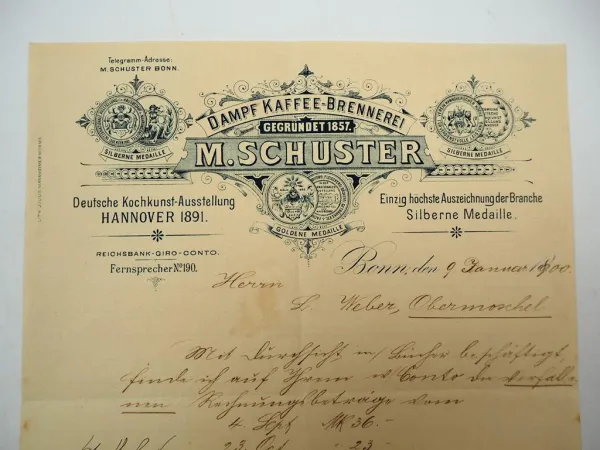 Telegramm-Adresse:
M. SCHUSTER BONN.
DAMPF KAFFEE-BRENNEREI
GEGRÜNDET 1857.
M. SCHUSTER
SILBERNE MEDAILLE
SILBERNE MEDAILLE
GOLDENE MEDAILLE
Deutsche Kochkunst-Ausstellung
HANNOVER 1891.
Einzig höchste Auszeichnung der Branche
Silberne Medaille.
REICHSBANK-GIRO-CONTO.
Fernsprecher No. 190.
Bonn, den 9 Januar 1900.
Herrn
L. Weber, Obermoschel
Mit Durchsicht m/ Bücher beschäftegt,
finde ich auf Ihrem w/ Conto die verfalle
nen Rechnungsbeträge vom
4. Spt MK 36.-
23. Oct - 23 -